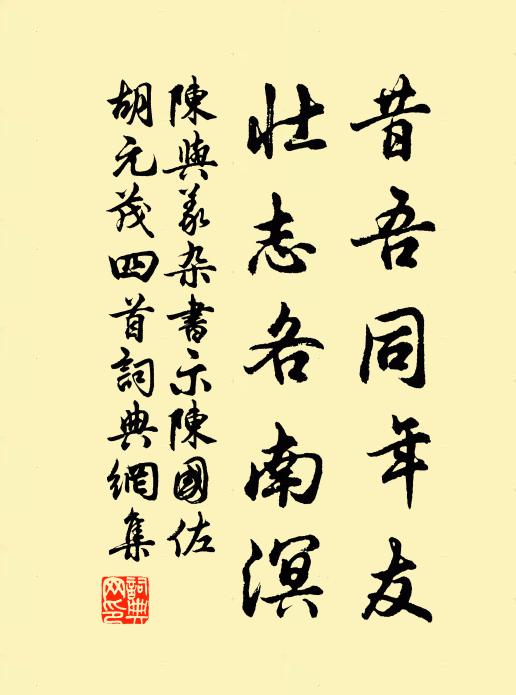 昔吾同年友
壮志各南溟
陳與義杂書示陳國佐
胡元茂四首詞典網集
詞典网印